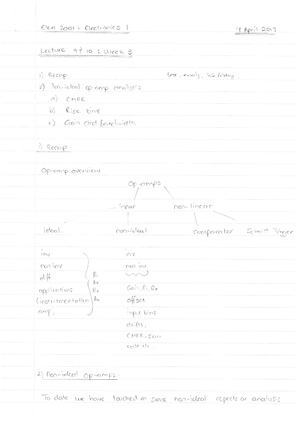 Elen 2001 : Electronics 1
April 2013
Lecture 9/10 : Week 3
1) Recap
2) Non-ideal op-amp analysis
a) CMRR
b) Rise time
c) Gain and Bandwidth
1) Recap
Op-amp overview
Op-amps
linear non-linear
ideal non-ideal comparator Schmitt Trigger
inv inv
non inv non inv
diff
applications Gain, Ri, Ro
(instrumentation offset
amp) input bias
CMRR
2) Non-ideal Op-amps
To date we have touched on some non-ideal aspects or analysis